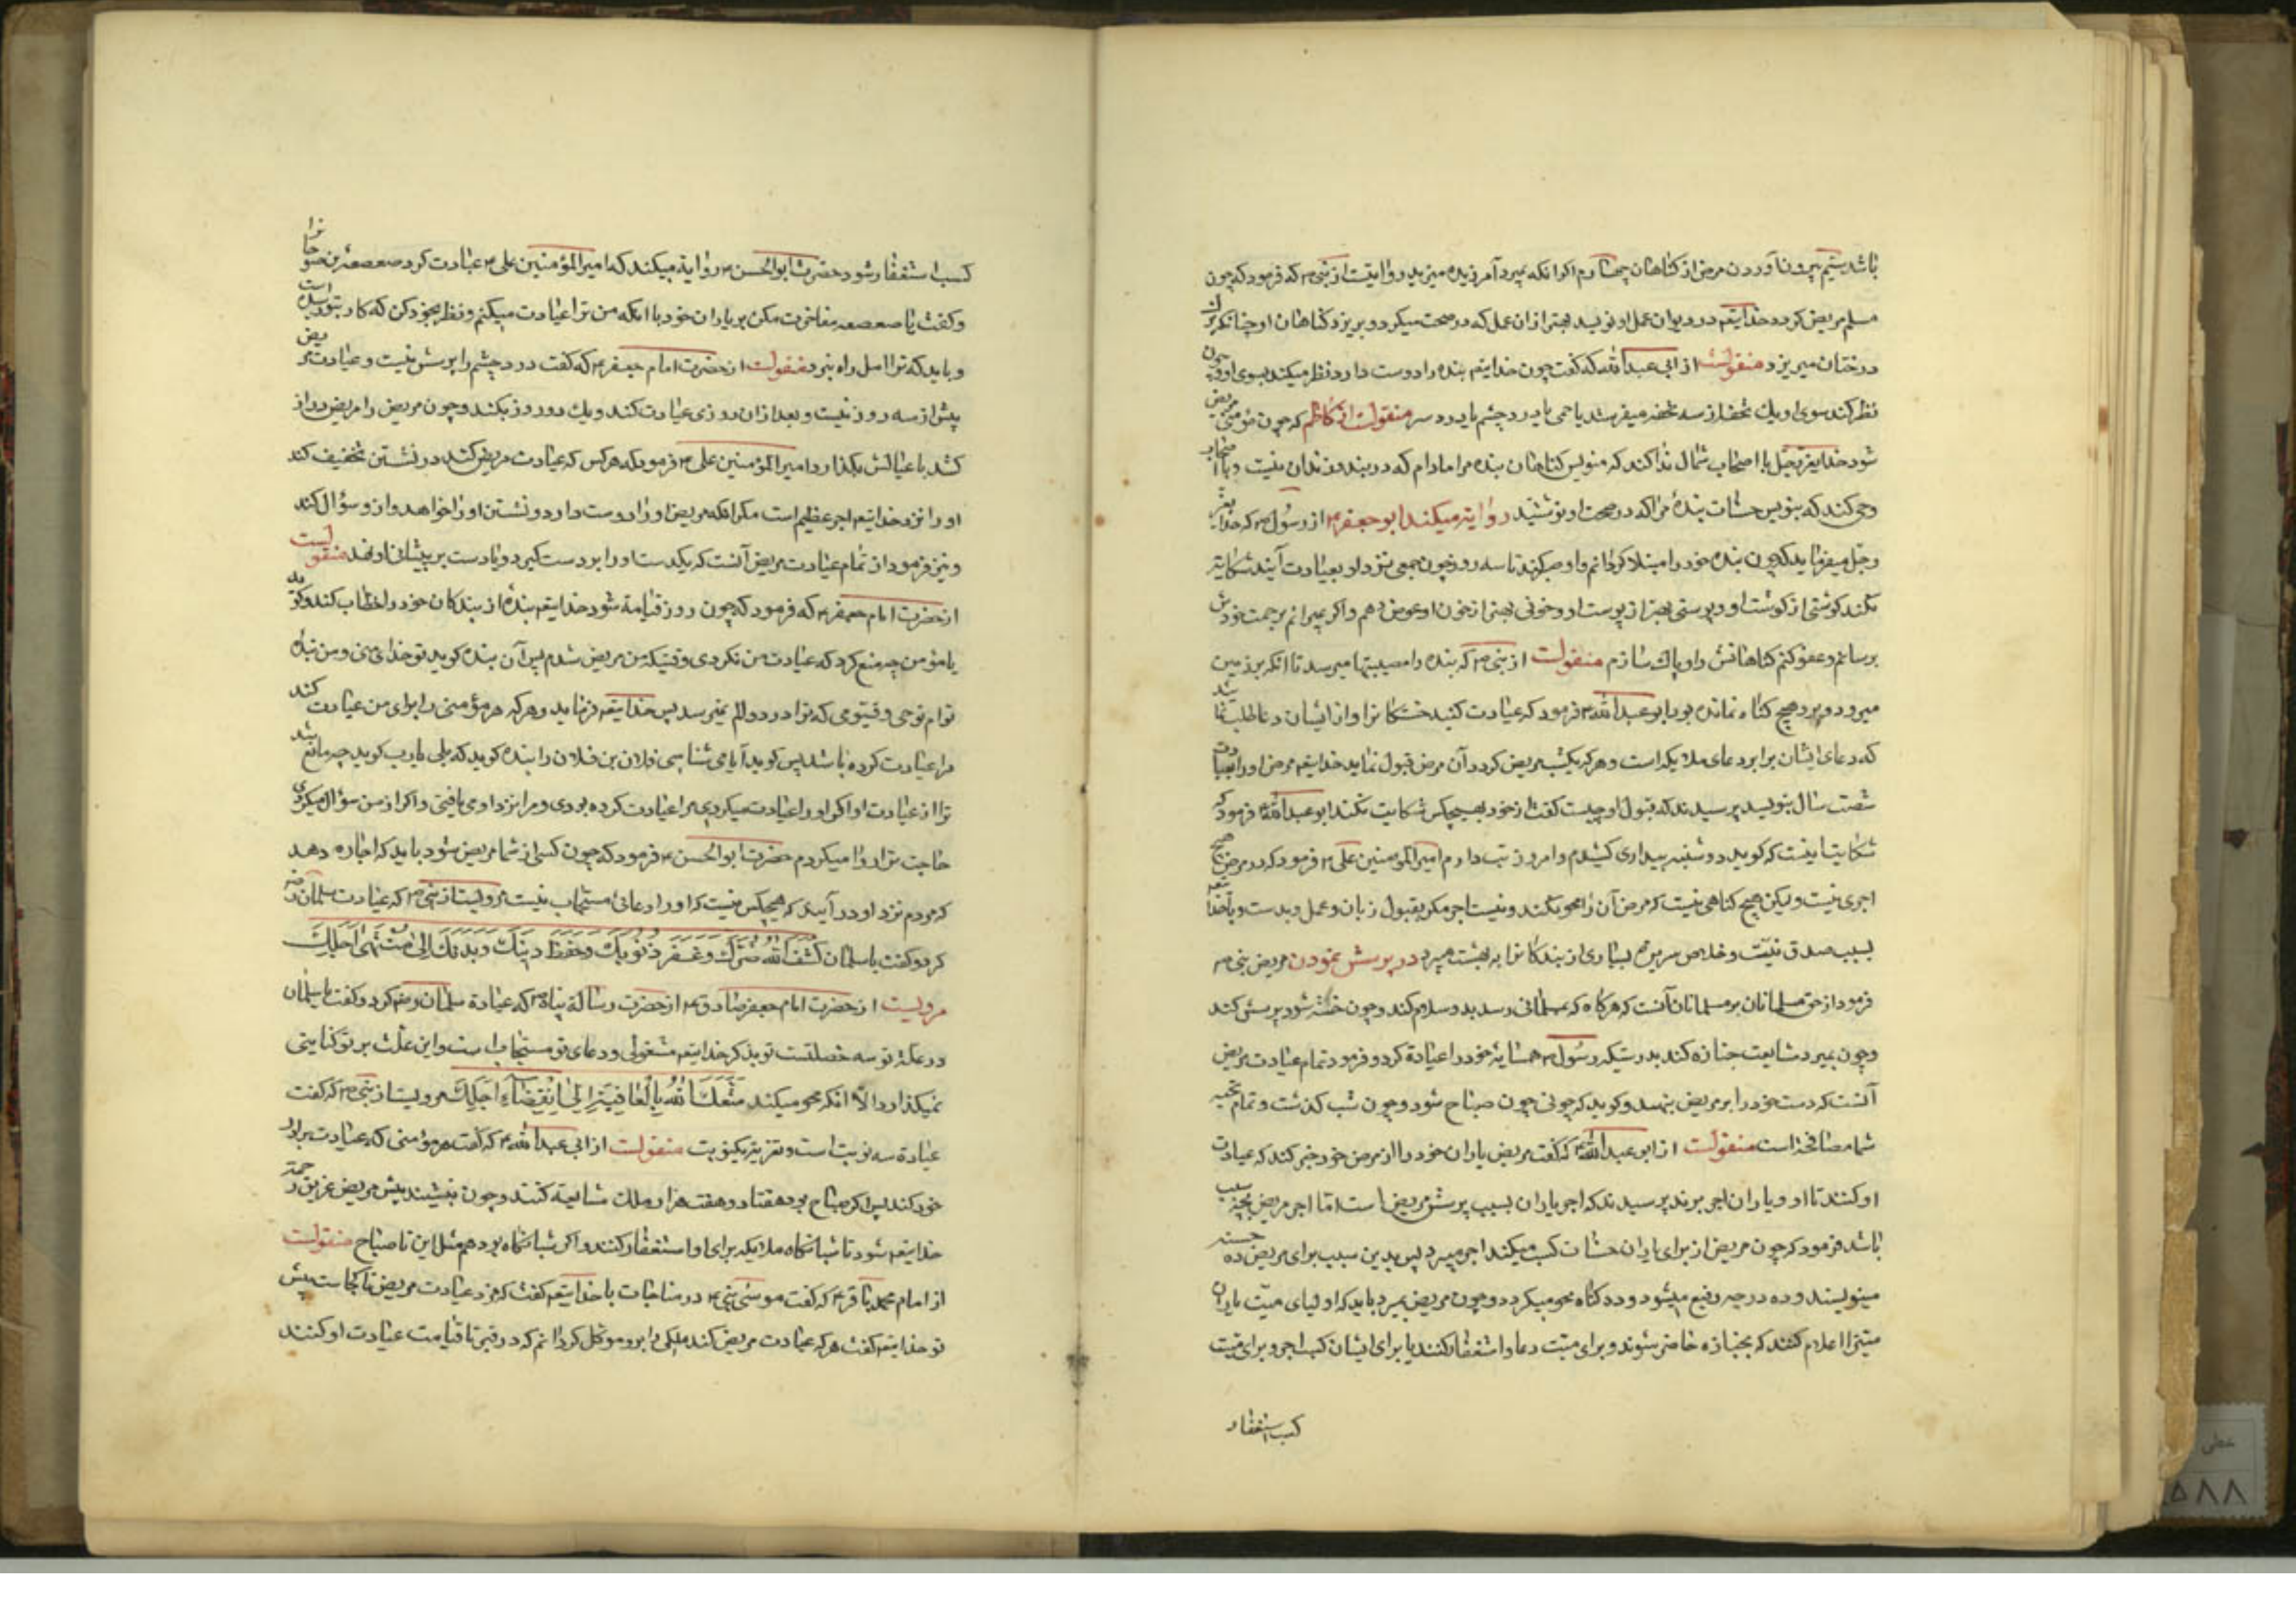 باشد سیم بیرون آوردن مرض از کناهان چهارم اکر انکه بمیرد آمرزیده میرد روایتست از نبی ۴ که فرمود که چون
مسلم مریض کردد خدایتع در دیوان عمل او نوید بهتر از ان عمل که در صحت میکرد و بریزد کناهان او چنانکه برک
درختان میریزد منقولست از ابی عبدالله که کفت چون خدایتع بنده را دوست دارد نظر میکند بسوی او و چون
نظر کند سوی او یک تحفه از سه تحفه میفرستد یا حمی یا درد چشم یا درد سر منقولست از کاظم که چون مؤمنی مریض
شود خدای عزوجل با اصحاب شمال ندا کند که منویس کناهان بنده مرا مادام که در بند و زندان منست و با اصحاب
وحی کند که بنویس حسنات بندهٔ مرا که در صحت او نوشتید روایة میکند ابو جعفر ۴ از رسول ۴ که خدا عز
وجل میفرماید که چون بنده خود را مبتلا کردانم و او صبر کند تا سه روز چون جمعی نزد او بعیادت آیند شکایة
نکند کوشتی از کوشت او و پوستی بهتر از پوست او و خونی بهتر از خون او عوض دهم و اکر بمیرانم برحمت خودش
برسانم و عفو کنم کناهانش را و پاک سازم منقولست از نبی ۴ که بنده را مصیبتها میرسد تا انکه بر زمین
میرود و برو هیچ کناه نمانده بود ابو عبدالله ۴ فرمود که عیادت کنید خستکانرا و از ایشان دعا طلب نمائید
که دعای ایشان برابر دعای ملایکه است و هر که یکشب مریض کردد آن مرض قبول نماید خدایتع مرض او را بعبادت
شصت سال بنویسد پرسیدند که قبول او چیست کفت از خود بهیچکس شکایت نکند ابو عبدالله ۴ فرمود که
شکایت اینست که کوید دوشنبه بیداری کشیدم و امروز تب دارم امیر المؤمنین علی ۴ فرمود که در مرض هیچ
اجری نیست ولیکن هیچ کناهی نیست که مرض آن را محو نکند و نیست اجر مکر بقبول زبان و عمل و بدست و پا خدایتع
بسبب صدق نیت و خلاص سریرة بسیاری از بندکانرا به بهشت میبرد در پرسش نمودن مریض نبی ۴
فرمود از حق مسلمانان بر مسلمانان آنست که هرکاه که بمسلمانی رسد بدو سلام کند و چون خسته شود پرسش کند
و چون بمیرد مشایعت جنازه کند بدرستیکه رسول ۴ همسایهٔ خود را عیادة کرد و فرمود تمام عیادت مریض
آنست که دست خود را بر مریض بنهد و کوید که چونی چون صباح شود و چون شب کذشت و تمام تحیه
شما مصافحه است منقولست از ابو عبدالله ۴ که کفت مریض یاران خود را از مرض خود خبر کند که عیادت
او کنند تا او و یاران اجر برند پرسیدند که اجر یاران بسبب پرسش مریض است اما اجر مریض بچه سبب
باشد فرمود که چون مریض از برای یاران حسنات کسب میکند اجر میبرد پس بدین سبب برای مریض ده حسنه
مینویسند و ده درجه رفیع میشود و ده کناه محو میکردد و چون مریض بمیرد باید که اولیای میت یاران
میترا اعلام کنند که بجنازه حاضر شوند و برای میت دعا و استغفار کنند یا برای ایشان کسب اجر و برای میت
کسب استغفار
کسب استغفار شود حضرت ابو الحسن ۴ روایة میکند که امیر المؤمنین علی ۴ عیادت کرد صعصعة بن صوحانرا
و کفت یا صعصعه مفاخرت مکن بر یاران خود با انکه من ترا عیادت میکنم و نظر بخود کن که کار بتو رسیده است
و باید که ترا امل راه نبرد منقولست از حضرت امام جعفر ۴ که کفت درد چشم را پرسش نیست و عیادت مریض
پیش از سه روز نیست و بعد از ان روزی عیادت کند و یک دو روز نکند و چون مریض را مرض دراز
کشد با عیالش بکذارد امیر المؤمنین علی ۴ فرمود که هر کس که عیادت مریض کند در نشستن تخفیف کند
او را نزد خدایتع اجر عظیم است مکر انکه مریض او را دوست دارد و نشستن او را خواهد و از و سؤال کند
و نیز فرمود از تمام عیادت مریض آنست که یکدست او را بر دست کیرد و یا دست بر پیشانی او نهد منقولست
از حضرت امام جعفر ۴ که فرمود که چون روز قیامة شود خدایتع بندهٔ از بندکان خود را خطاب کند و کوید
یا مؤمن چه منع کرد که عیادت من نکردی وقتیکه من مریض شدم پس آن بنده کوید تو خدای منی و من بنده
توام تو حی و قیومی که ترا درد و الم نمیرسد پس خدایتع فرماید و هر که هر مؤمنی را برای من عیادت کند
مرا عیادت کرده باشد پس کوید آیا می شناسی فلان بن فلان را بنده کوید که بلی یا رب کوید چه مانع شد
ترا از عیادت او اکر او را عیادت میکردی مرا عیادت کرده بودی و مرا نزد او می یافتی و اکر از من سؤال میکردی
حاجت ترا روا میکردم حضرت ابو الحسن ۴ فرمود که چون کسی از شما مریض شود باید که اجازه دهد
که مردم نزد او در آیند که هیچکس نیست که او را دعائی مستجاب نیست مرویست از نبی ۴ که عیادت سلمان رضه
کرد و کفت یا سلمان كَشَفَ اللهُ ضُرَّكَ وَغَفَرَ ذُنُوبَكَ وَحَفِظَ دِينَكَ وَبَدَنَكَ اِلىٰ مُنْتَهىٰ اَجَلِكَ
مرویست از حضرت امام جعفر صادق ۴ از حضرت رسالة پناه ۴ که عیادة سلمان رضه کرد و کفت یا سلمان
در علة تو سه خصلتست تو بذکر خدایتع مشغولی و دعای تو مستجاب است و این علت بر تو کناهی
نمیکذارد الا انکه محو میکند مَتَّعَكَ اللهُ بِالْعَافِيَةِ اِلىٰ اِنْقِضَآءِ اَجَلِكَ مرویست از نبی ۴ که کفت
عیادة سه نوبت است و تعزیة یکنوبت منقولست از ابی عبدالله ۴ که کفت هر مؤمنی که عیادت برادر
خود کند پس اکر صباح بود هفتاد و هفت هزار ملک مشایعة کنند و چون بنشیند پیش مریض غریق رحمة
خدایتع شود تا شبانکاه ملایکه برای او استغفار کنند و اکر شبانکاه بود هم مثل این تا صباح منقولست
از امام محمد باقر ۴ که کفت موسی نبی ۴ در مناجات با خدایتع کفت که مزد عیادت مریض تا کجاست پیش
تو خدایتع کفت هر که عیادت مریض کند ملکی را برو موکل کردانم که در قبر تا قیامت عیادت او کنند
عطی
۵۸۸